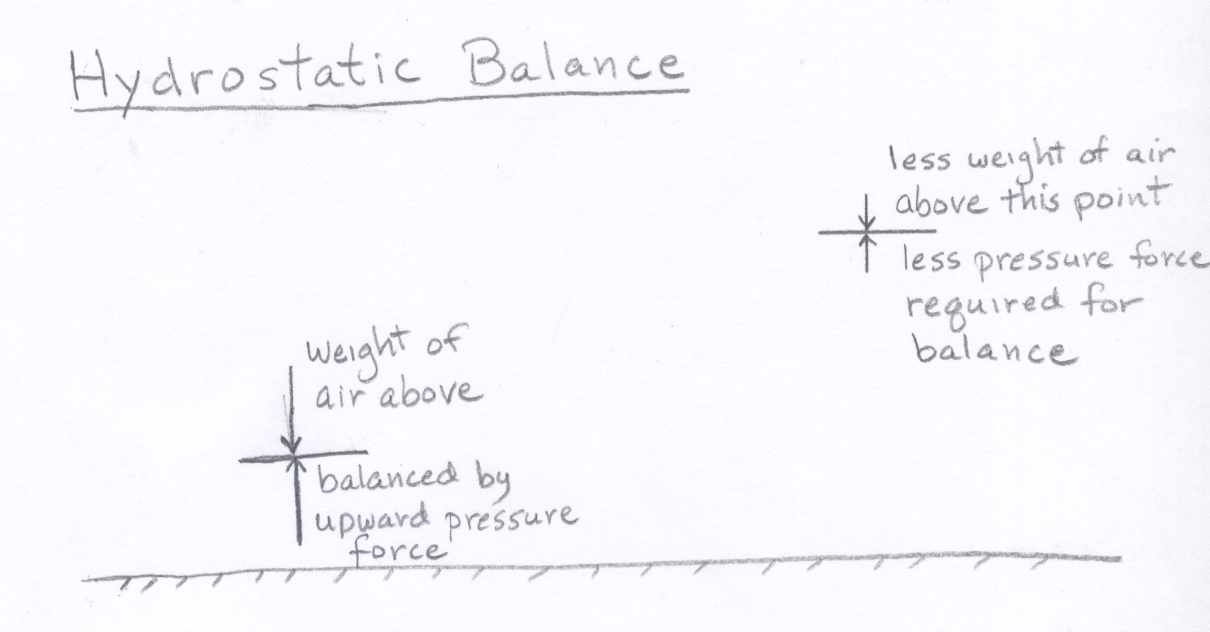 Hydrostatic Balance
less weight of air
above this point
less pressure force
required for
balance
weight of
air above
balanced by
upward pressure
force